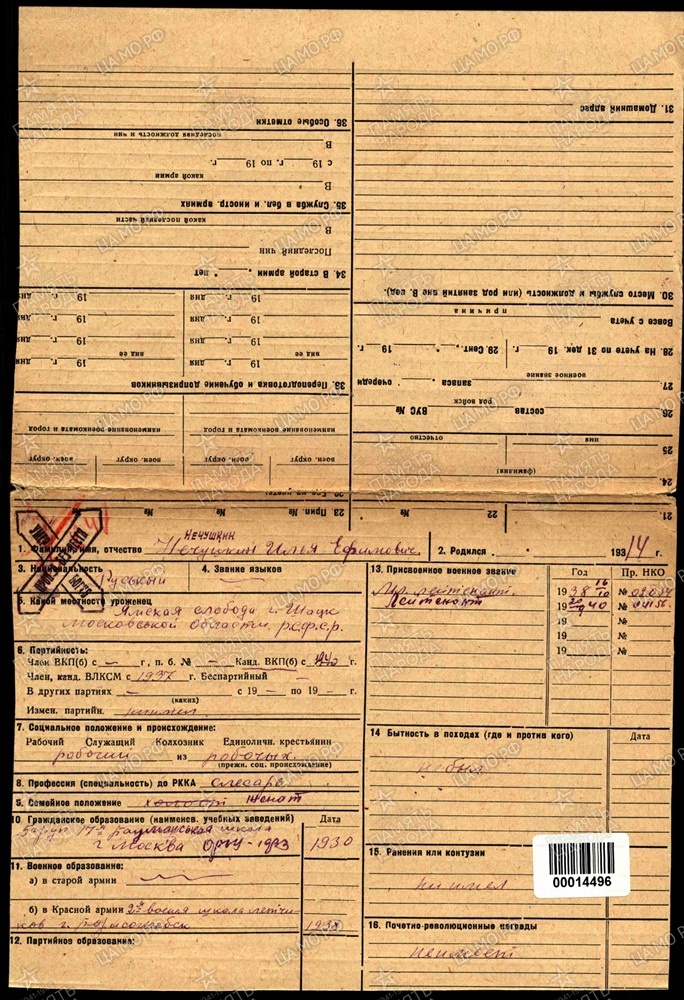 31. Домашний адрес
30. Место службы и должность (или род занятий вне В. вед.)
причина
Вовсе с учета
28. На учете по 31 дек. 19 г. 29. Сент. 19 г.
военное звание
27. запаса очереди
род войск
состав ВУС №
имя отчество
25
(фамилия)
24.
36. Особые отметки
последняя должность и чин
В
с 19 г. по 19 г.
какой армии
В
35. Служба в бел. и иностр. армиях
какой последней части
В
Последний чин
34. В старой армии лет
19 г. дня 19 г. дня
19 г. дня 19 г. дня
19 г. дня 19 г. дня
19 г. дня 19 г. дня
вид ее вид ее
33. Переподготовка и обучение допризывников
наименование военкомата и город наименование военкомата и город
воен. округ воен. округ воен. округ воен. округ
21. 22 № 23. Прип. № № №
НЕЧУШКИН
1. Фамилия, имя, отчество Нечушкин Илья Ефимович 2. Родился 1914 г.
3. Национальность Русский 4. Знание языков —
5. Какой местности уроженец Ямская слобода г. Шацк
Московской области, рсфср.
6. Партийность:
Член ВКП(б) с — г., п. б. № — Канд. ВКП(б) с 1940 г.
Член, канд. ВЛКСМ с 1937 г. Беспартийный —
В других партиях — с 19 — по 19 — г.
(каких)
Измен. партийн. неимел.
7. Социальное положение и происхождение:
Рабочий Служащий Колхозник Единоличн. крестьянин
рабочий из рабочих.
(прежн. соц. происхождение)
8. Профессия (специальность) до РККА слесарь
9. Семейное положение холост женат
10. Гражданское образование (наименов. учебных заведений) Дата
17я Бауманская школа
г. Москва 1930
11. Военное образование:
а) в старой армии —
б) в Красной армии 2я военная школа летчи-
ков г. Борисоглебск 1938
12. Партийное образование:
13. Присвоенное военное звание Год Пр. НКО
Мл. лейтенант. 1938 №
Лейтенант 1940 № 04156.
19 №
19 №
19 №
14 Бытность в походах (где и против кого) Дата
не был
15. Ранения или контузии
не имел
00014496
16. Почетно-революционные награды
неимеет
ЦАМО.РФ
ПАМЯТЬ НАРОДА